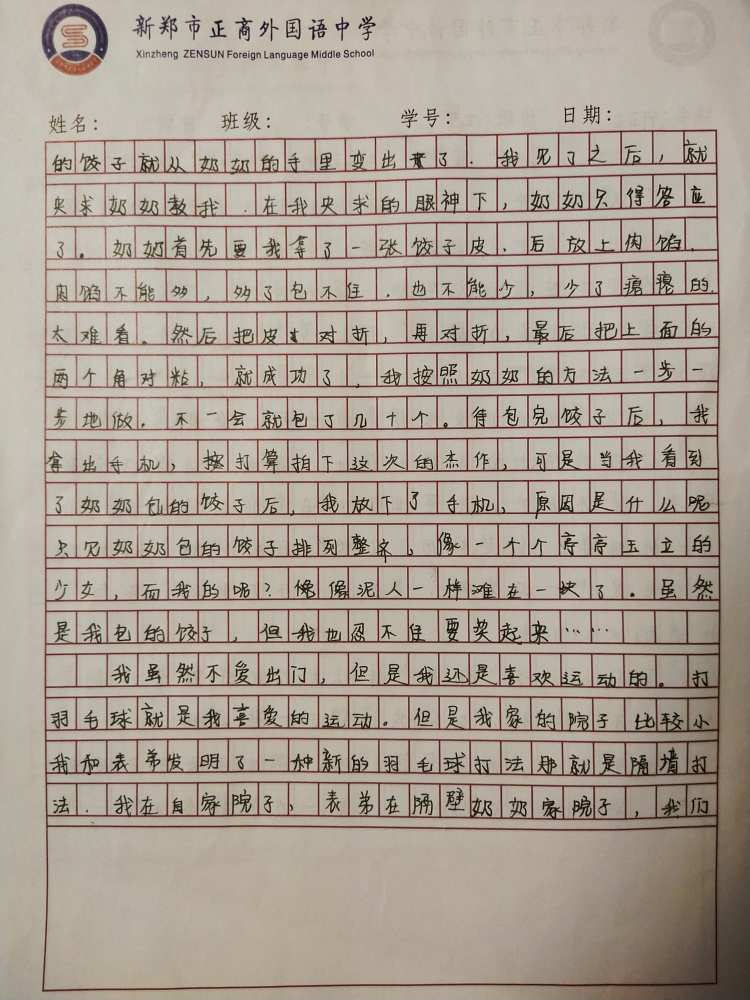 新郑市正商外国语中学
Xinzheng ZENSUN Foreign Language Middle School
姓名： 班级： 学号： 日期：
的饺子就从奶奶的手里变出来了．我见了之后，就
央求奶奶教我．在我央求的眼神下，奶奶只得答应
了。奶奶首先要我拿了一张饺子皮．后放上肉馅．
肉馅不能多，多了包不住．也不能少，少了瘪瘪的．
太难看。然后把皮对折，再对折，最后把上面的
两个角对粘，就成功了，我按照奶奶的方法一步一
步地做．不一会就包了几十个。待包完饺子后，我
拿出手机，打算拍下这次的杰作，可是当我看到
了奶奶包的饺子后，我放下了手机，原因是什么呢
只见奶奶包的饺子排列整齐，像一个个亭亭玉立的
少女，而我的呢？像泥人一样滩在一块了。虽然
是我包的饺子，但我也忍不住要笑起来……
我虽然不爱出门，但是我还是喜欢运动的。打
羽毛球就是我喜爱的运动．但是我家的院子比较小
我和表弟发明了一种新的羽毛球打法那就是隔墙打
法．我在自家院子、表弟在隔壁奶奶家院子，我们